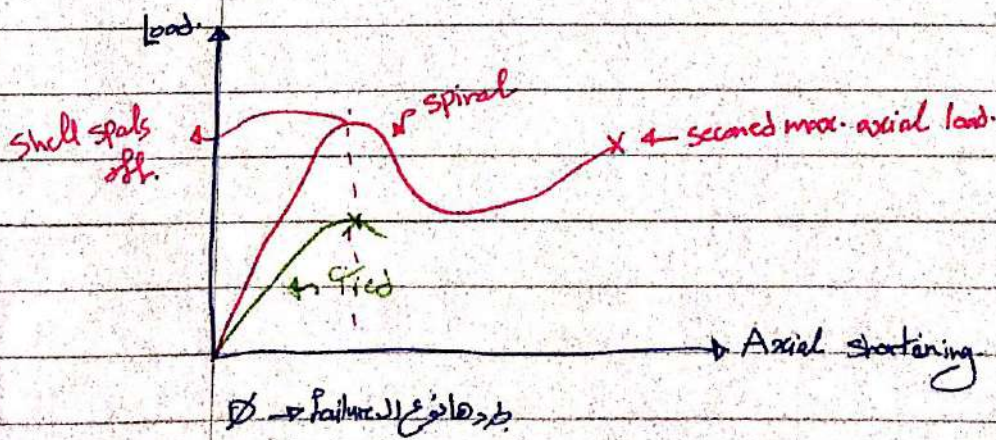 Load.
Shell spals
off.
spiral
seconed max. axial load.
Tied
Axial shortening
Ø → failure الـ نوع